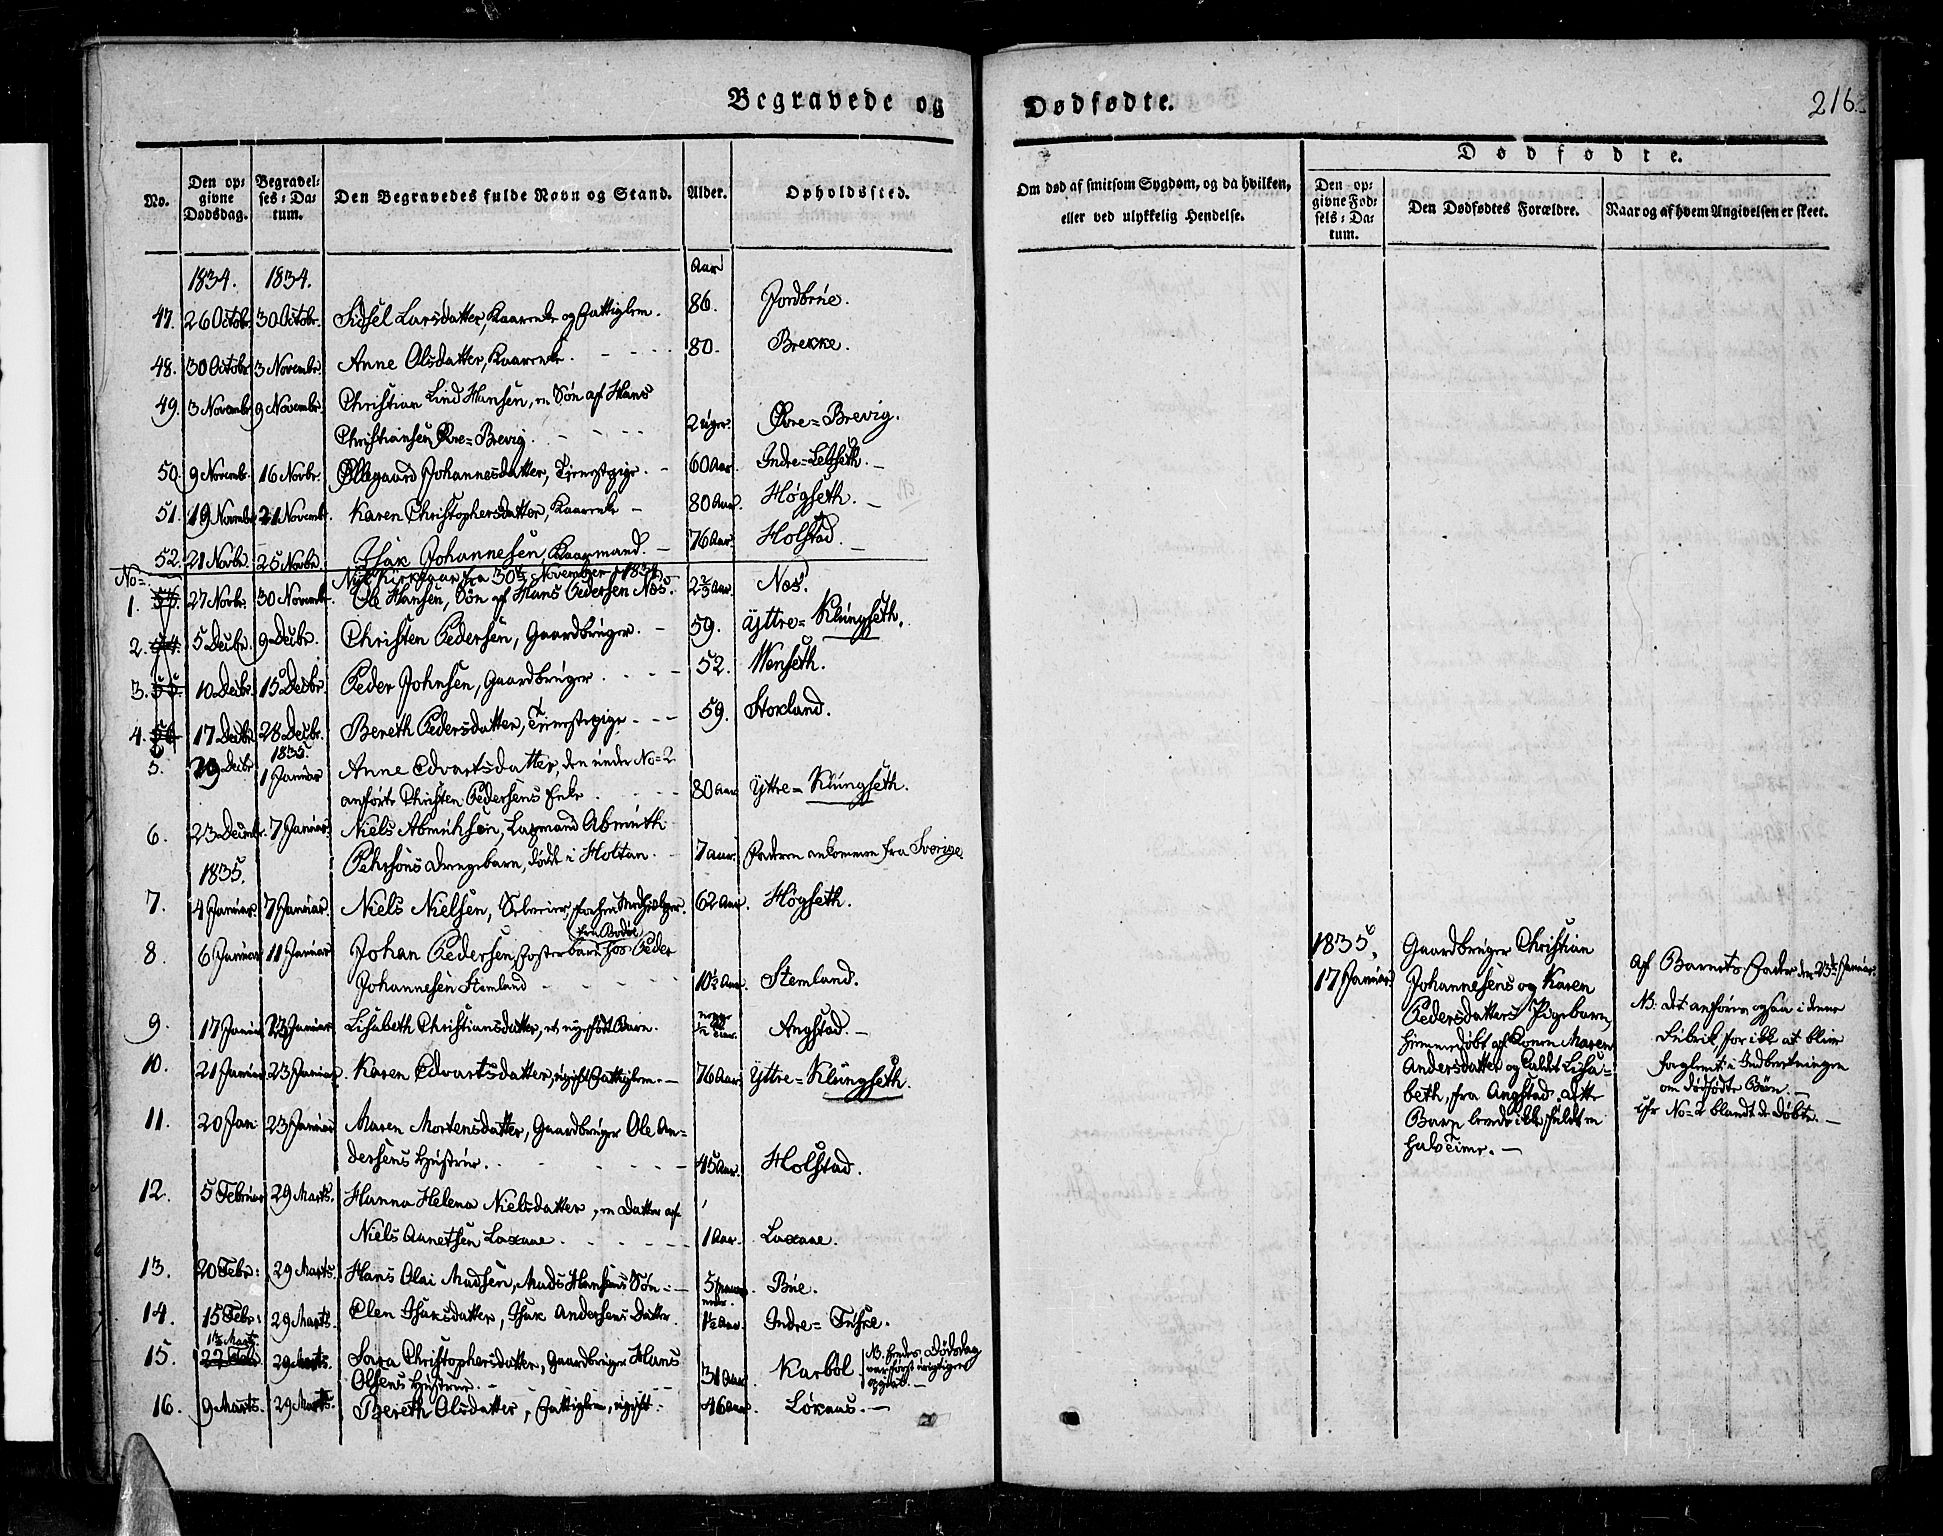 Begravede og
No.
Den op-
givne
Dødsdag.
Begravel-
ses-Da-
tum.
Den Begravedes fulde Navn og Stand.
Alder.
Opholdssted.
1834. 1834. Aar
47. 26 Octobr. 30 Octobr. Sidsel Larsdatter, Kaarenke og Fattiglem. 86. Jordbrue.
48. 30 Octobr. 3 Novembr. Anne Olsdatter, Kaarenke. 80. Brekke.
49. 3 Novembr. 9 Novembr. Christian Lind Hansen, en Søn af Hans
Christiansen Øvre=Brevig. 2 uger. Øvre=Brevig.
50. 9 Novemb. 16 Novbr. Øllegaard Johannesdatter, Tjenestepige. 60 Aar. Indre=
51. 19 Novembr. 21 Novembr. Karen Christophersdatter, Kaarenke 80 Aar. Høgseth.
52. 21 Novbr. 25 Novbr. Isak Johannesen, Kaarmand. 76 Aar. Holstad.
No= Nye Kirkeaar fra 30te November 1834.
1. 27 Novbr. 30 Novembr. Ole Hansen, Søn af Hans Pedersen Næs. Næs.
2. 54. 5 Decbr. 9 Decbr. Christen Pedersen, Gaardbruger. 59. Yttre=Klungseth.
3. 55. 10 Decbr. 15 Decbr. Peder Johnsen, Gaardbruger. 52. Wenseth.
4. 56 17 Decbr. 28 Decbr. Bereth Pedersdatter, Tjenestepige. 59. Storland.
1835.
5. 19 Decbr. 1 Januar Anne Edvartsdatter, den under No=2
anførte Christen Pedersens Enke 80 Aar Yttre=Klungseth.
6. 23 Decembr. 7 Januar. Niels Abmuthsen, Lapmand Abmuth
Pehrsøns Drengebarn, død i Holtan. 7 Aar. Faderen ankommen fra Sverige.
1835.
7. 4 Januar. 7 Januar. Niels Nielsen, Selveier, 62 Aar. Høgseth.
fra Bodøe
8. 6 Januar 11 Januar Johan Pedersen, Fosterbarn hos Peder
Johannesen Stemland 10½ Aar. Stemland.
9. 17 Januar 23 Januar Lisabeth Christiansdatter, et nyefødt Barn. neppe ½ Time. Angstad.
10. 21 Januar 23 Januar. Karen Edvartsdatter, ugift Fattiglem. 76 Aar Yttre=Klungseth.
11. 20 Jan 23 Januar Maren Mortensdatter, Gaardbruger Ole An=
dersens Hustrue. 45 Aar. Holstad.
12. 5 Februar 29 Marts. Hanna Helena Nielsdatter, en Datter af
Niels Annetsen Laxaae. 1 Aar. Laxaae.
13. 20 Febr: 29 Marts. Hans Olai Madsen, Mads Hansens Søn. 5 maaneder. Bue.
14. 15 Febr: 29 Marts. Elen Isaksdatter, Isak Andersens Datter. 1½ Aar. Indre=Tuske.
15. 22 Febr. 29 Marts. Sora Christophersdatter, Gaardbruger Hans
Olsens Hustrue. 31 Aar. Karbøl. NB. hendes Dødsdag
var først urigtigen
opgivet.
16. 9 Marts. 29 Marts. Bereth Olsdatter, Fattiglem, ugift. 46 Aar. Løkaas.
Dødfødte.
216.
Om død af smitsom Sygdom, og da hvilken,
eller ved ulykkelig Hendelse.
Dødfødte.
Den op-
givne Fød-
sels-Da-
tum.
Den Dødfødtes Forældre.
Naar og af hvem Angivelsen er skeet.
1835,
17 Januar
Gaardbruger Christian
Johannesens og Karen
Pedersdatters Pigebarn,
hjemmedøbt af Konen Maren
Andersdatter og kaldet Lisa=
beth, fra Angstad. Dette
Barn levede ikke fuldt en
halv Time.
Af Barnets Fader den 23de Januar.
NB. Det anføres ogsaa i denne
Rubrik, for ikke at blive
forglemt i Indberetningen
om dødfødte Børn.
cfr No=2 blandt de Døbte.